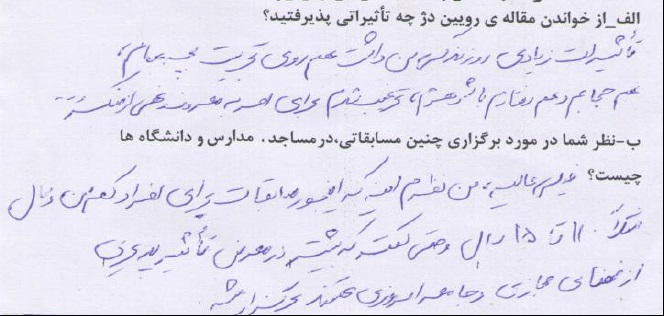 الف_از خواندن مقاله ی رویین دژ چه تأثیراتی پذیرفتید؟
تأثیرات زیادی روز زندگی من داشت هم روی تربیت بچه‌هام،
هم حجابم هم رفتارم با شوهرم، ترغیب شدم برای امر به معروف و نهی از منکر
ب-نظر شما در مورد برگزاری چنین مسابقاتی،در مساجد. مدارس و دانشگاه ها
چیست؟ خیلی عالیه، من نظرم اینه که اینجور مسابقات برای افراد کم سن و سال
مثلاً ۱۱ تا ۱۵ سال و حتی کمتر که بیشتر در معرض تأثیرپذیری
از فضای مجازی و جامعه امروزی هستند برگزار بشه